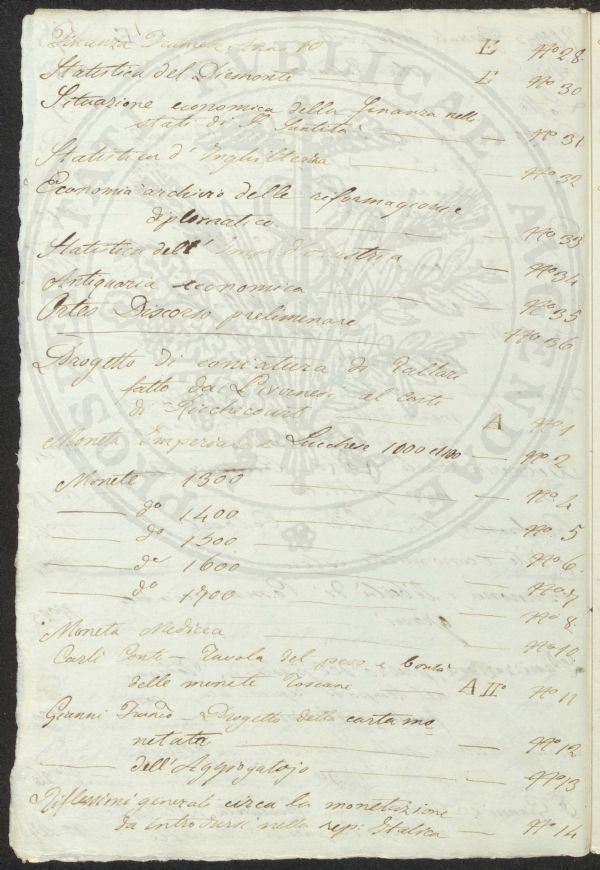 Finanza Francese Anno 10 — E N° 28
Statistica del Piemonte — E N° 30
Situazione economica della finanza nelli
stati di S. Santità — N° 31
Statistica d'Inghilterra — N° 32
Economia archivio delle riformagioni e
diplomatico — N° 33
Statistica dell' Imp. d'Austria — N° 34
Antiquaria economica — N° 35
Ortes Discorso preliminare — N° 36
Progetto di coniatura di Talleri
fatto da Livornesi al Conte
di Richecourt — A N° 1
Moneta Imperiale e Lucchese 1000 e 1100 — N° 2
Monete 1300 — N° 4
— d° 1400 — N° 5
— d° 1500 — N° 6
— d° 1600 — N° 7
— d° 1700 — N° 8
Moneta Medicea — N° 10
Carli Conte — Tavola del peso, e bontà
delle monete Toscane — A II° N° 11
Gianni Franco — Progetto della carta mo
netata — N° 12
— dell'Aggiogatojo — N° 13
Riflessioni generali circa la monetazione
da introdursi nella rep: Italica — N° 14
PUBLICAE